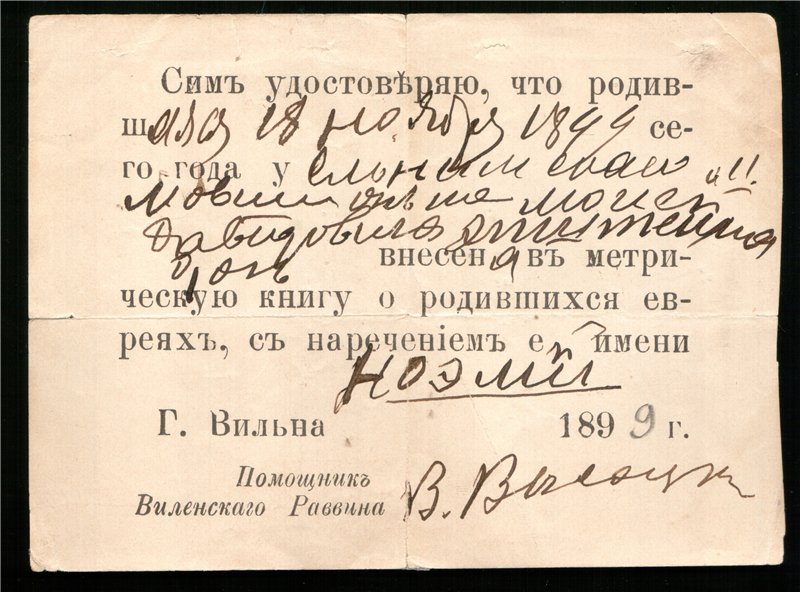 Симъ удостовѣряю, что родив-
шаяся 18 ноября 1899 се-
го года у
Давидовича
дочь внесена въ метри-
ческую книгу о родившихся ев-
реяхъ, съ нареченіемъ ей имени
Ноэми
Г. Вильна 1899 г.
Помощникъ
Виленскаго Раввина В. Высоцк